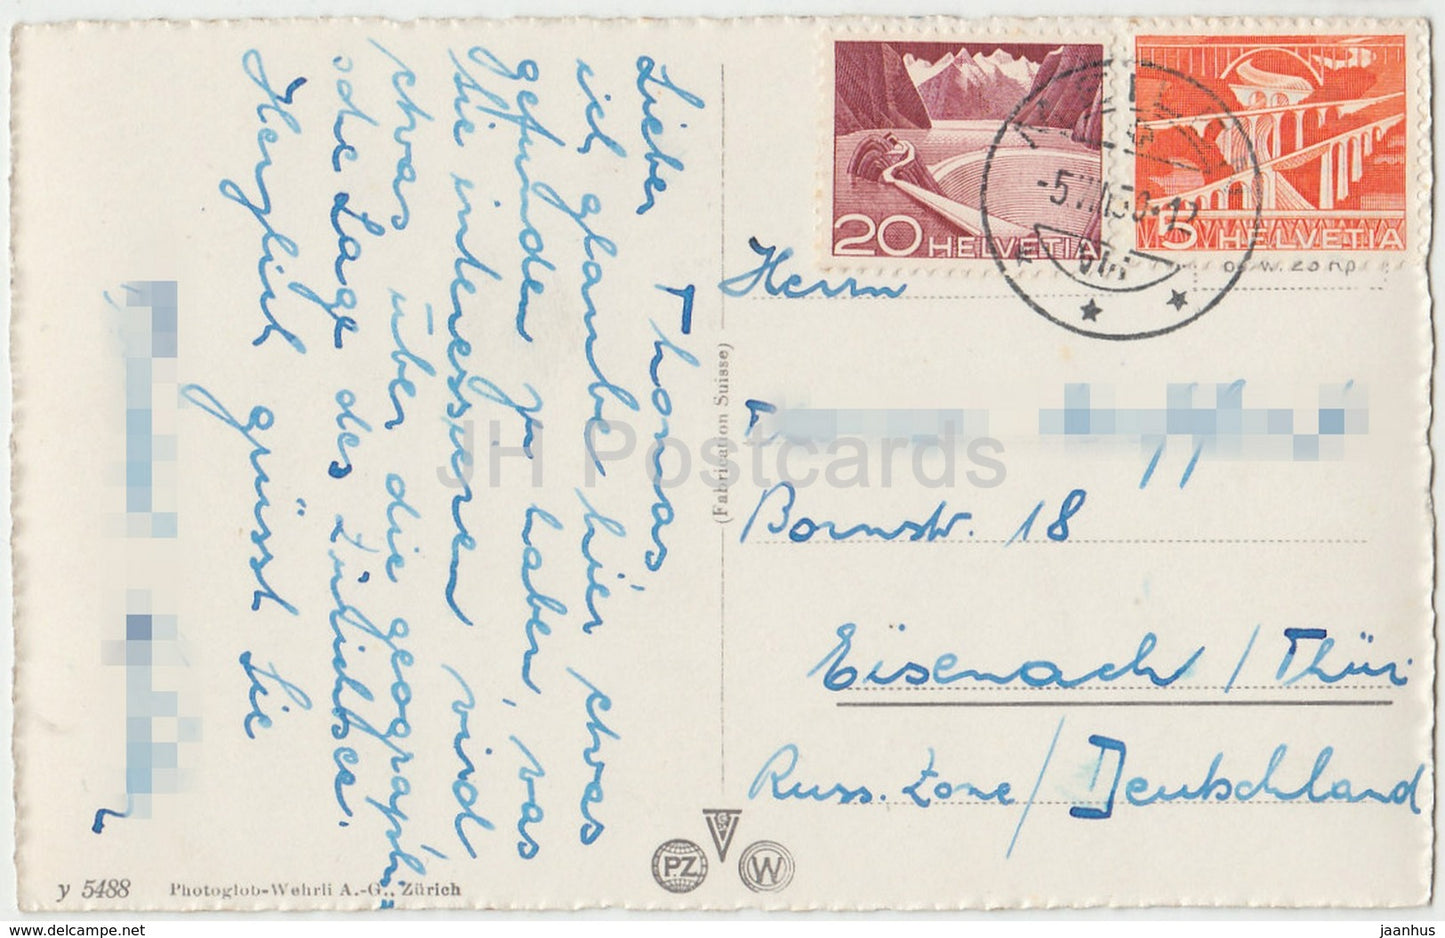 Lieber Thomas
ich glaube hier etwas
gefunden zu haben, was
Sie interessieren wird
etwas über die geographi
sche Lage des Zürichsees.
Herzlich grüsst Sie
20 HELVETIA
5 HELVETIA
-5.VII.50-12
Herrn
Bornstr. 18
Eisenach / Thür.
Russ. Zone / Deutschland
(Fabrication Suisse)
JH Postcards
PZ
W
y 5488 Photoglob-Wehrli A.-G., Zürich
www.hippostcard.com
jaanhus